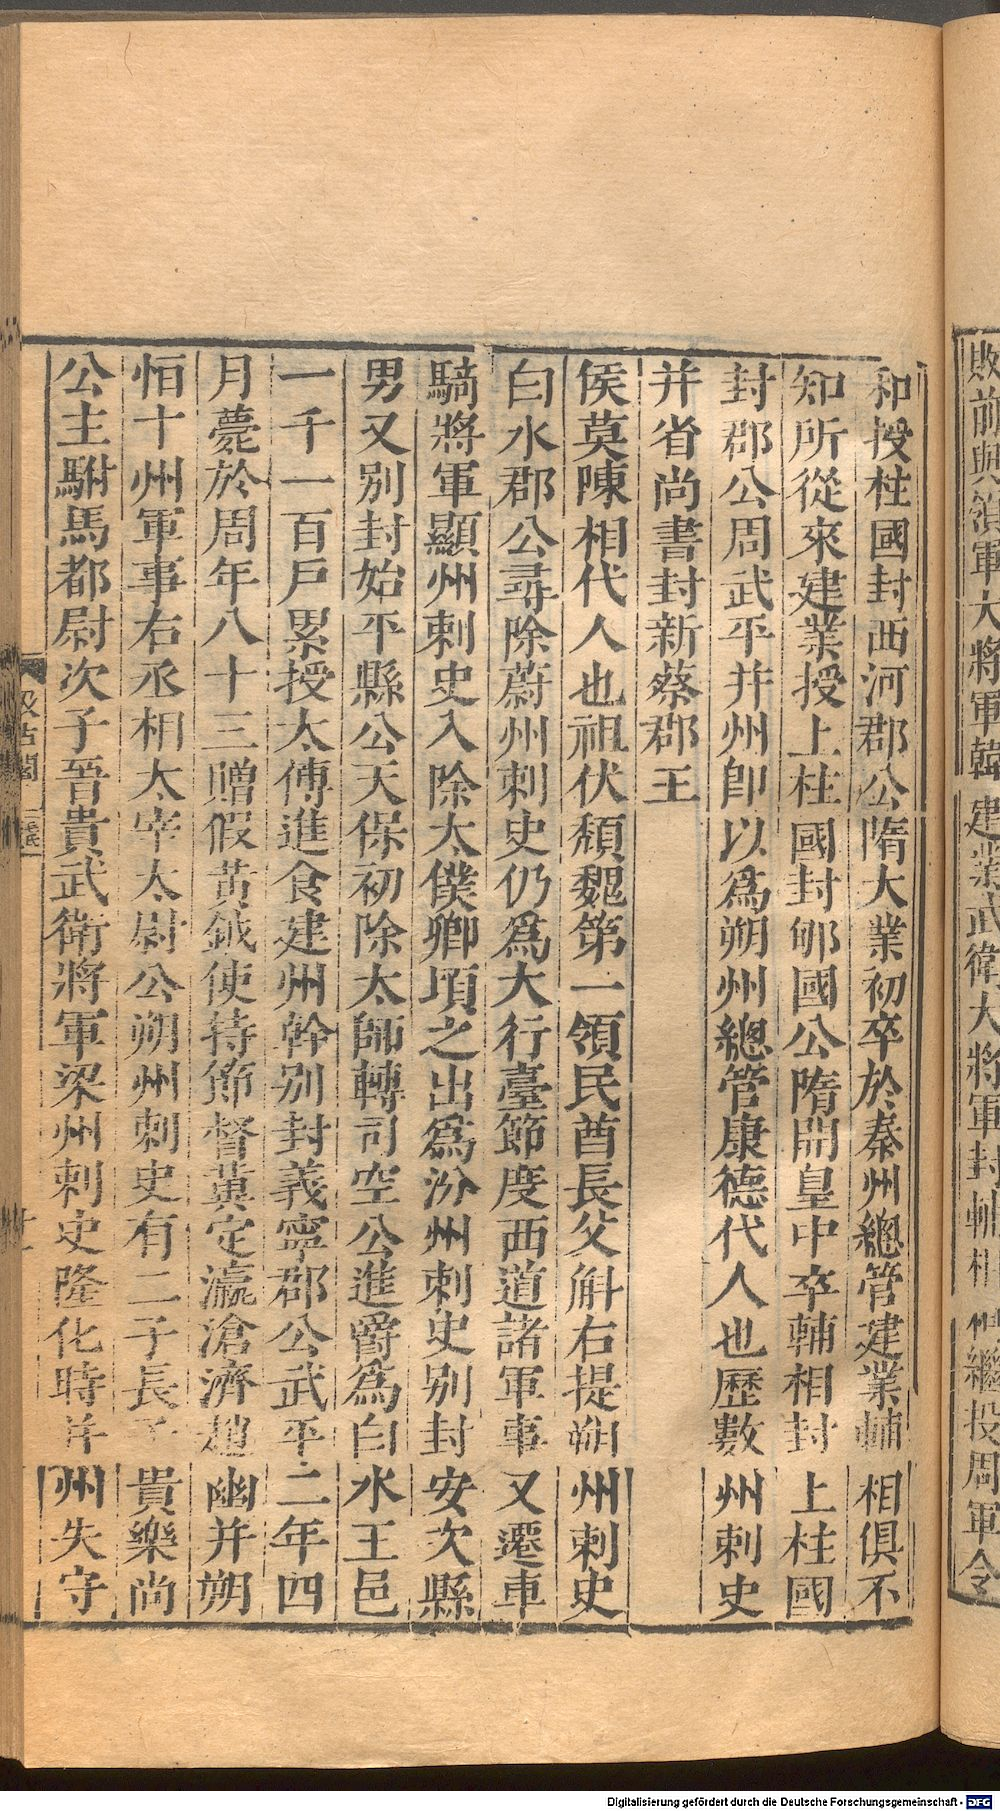 和授柱國封西河郡公隋大業初卒於秦州總管建業輔相俱不
知所從來建業授上柱國封郇國公隋開皇中卒輔相封上柱國
封郡公周武平并州即以為朔州總管康德代人也歷數州刺史
并省尚書封新蔡郡王
侯莫陳相代人也祖伏頹魏第一領民酋長父斛右提朔州刺史
白水郡公尋除蔚州刺史仍為大行臺節度西道諸軍事又遷車
騎將軍顯州刺史入除太僕卿頃之出為汾州刺史別封安次縣
男又別封始平縣公天保初除太師轉司空公進爵為白水王邑
一千一百戶累授太傅進食建州幹別封義寧郡公武平二年四
月薨於周年八十三贈假黃鉞使持節督冀定瀛滄濟趙幽并朔
恒十州軍事右丞相太宰太尉公朔州刺史有二子長子貴樂尚
公主駙馬都尉次子晉貴武衛將軍梁州刺史隆化時并州失守
汲古閣
敗前與領軍大將軍韓建業武衛大將軍封輔相相繼投周軍令
Digitalisierung gefördert durch die Deutsche Forschungsgemeinschaft - DFG